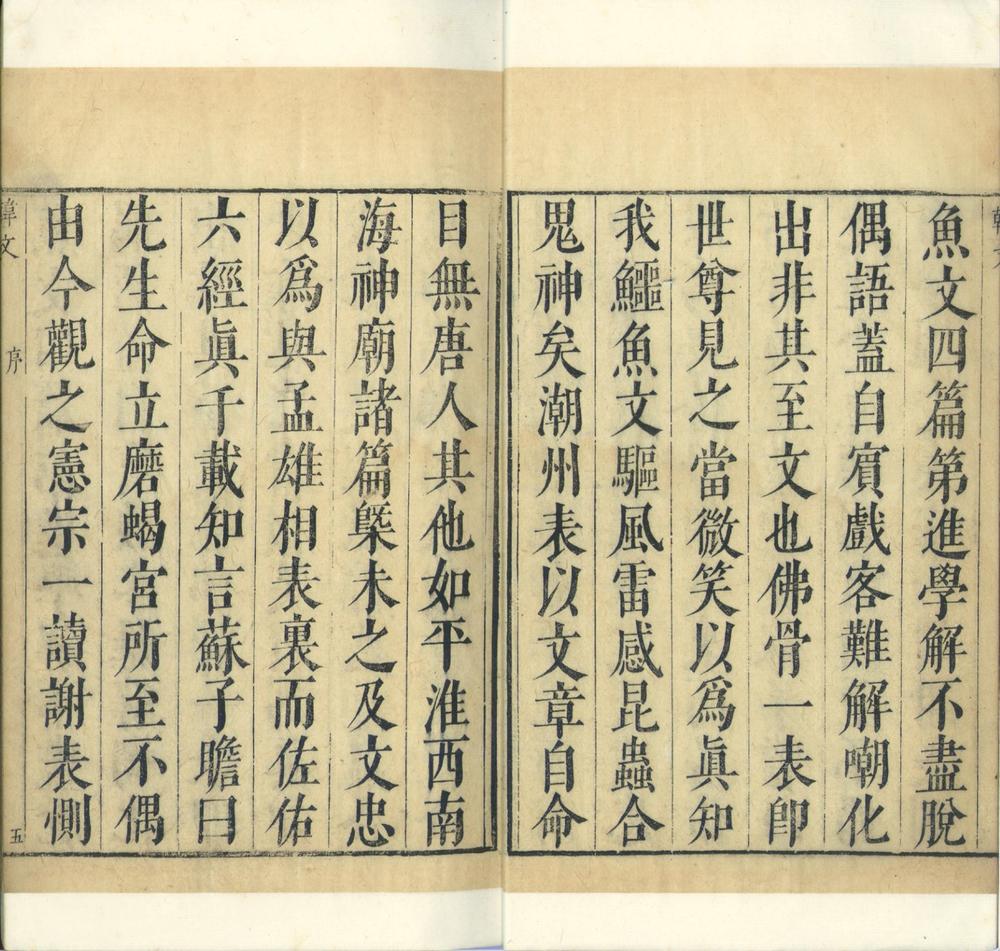 魚文四篇第進學解不盡脫
偶語蓋自賓戲客難解嘲化
出非其至文也佛骨一表卽
世尊見之當微笑以爲眞知
我鱷魚文驅風雷感昆蟲合
鬼神矣潮州表以文章自命
目無唐人其他如平淮西南
海神廟諸篇槩未之及文忠
以爲與孟雄相表裏而佐佑
六經眞千載知言蘇子瞻曰
先生命立磨蝎宮所至不偶
由今觀之憲宗一讀謝表惻
序
五